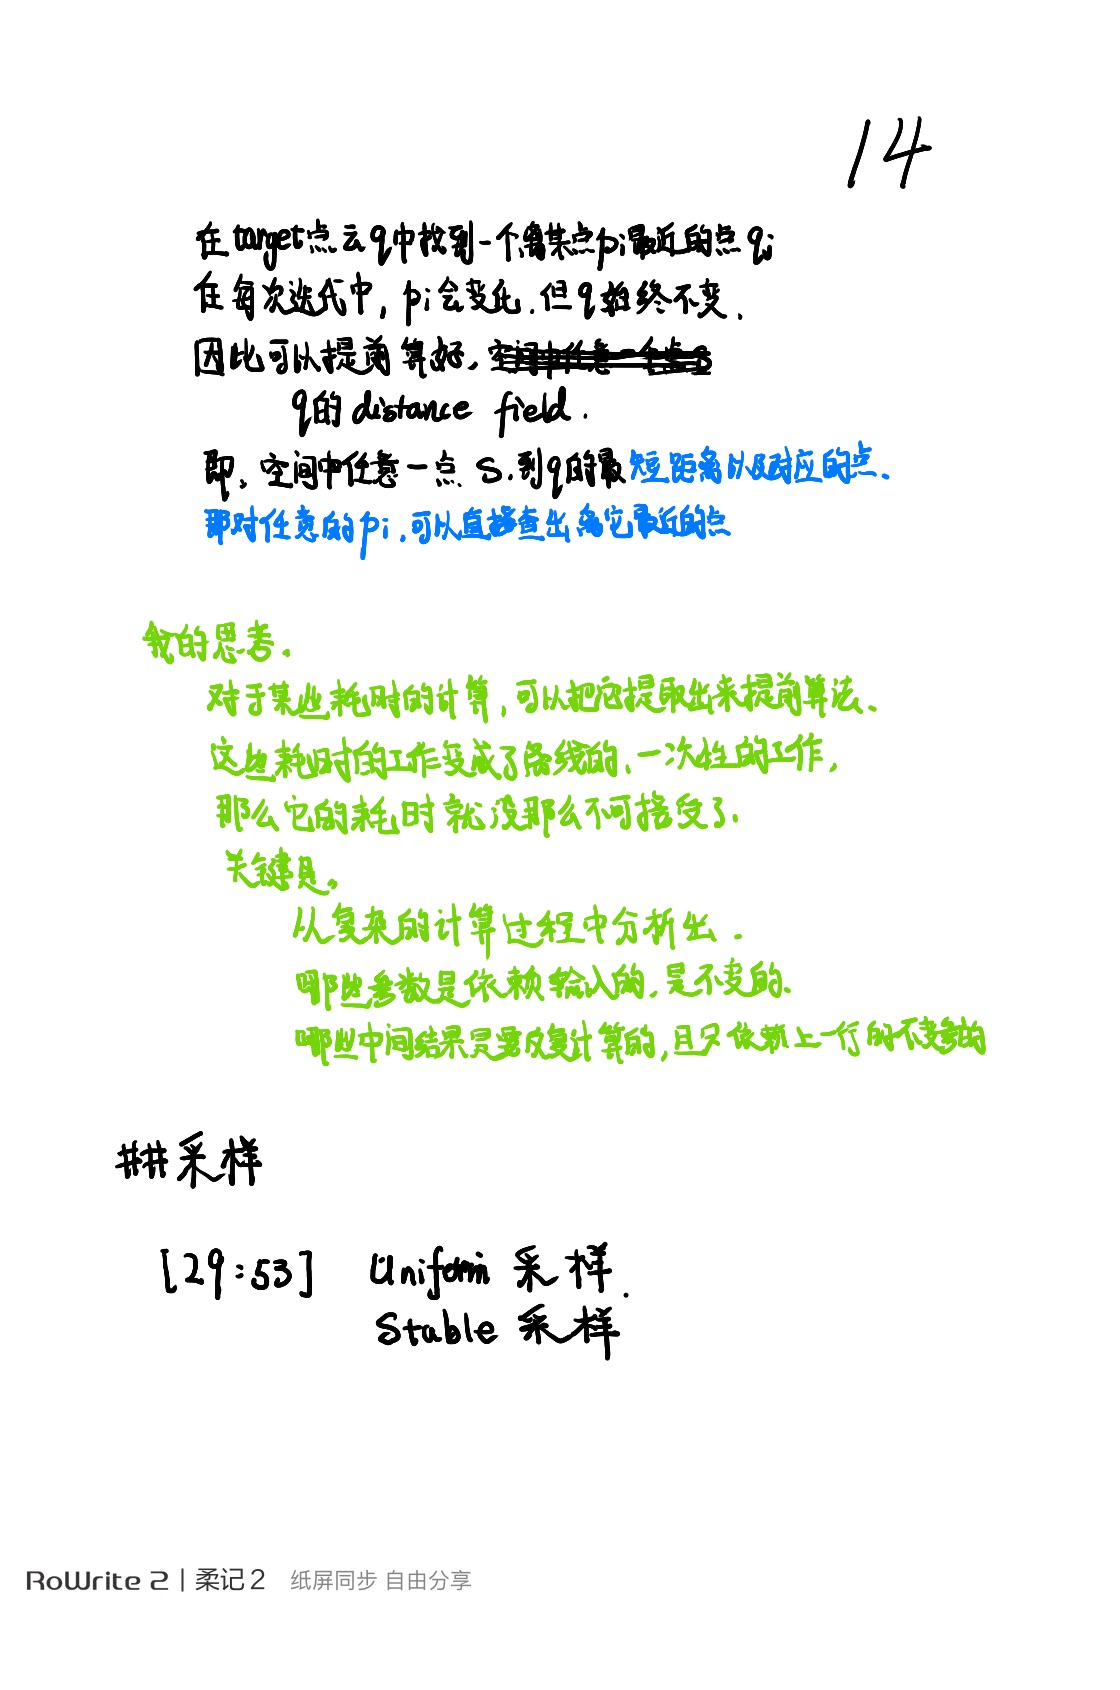 14
在target点云q中找到一个离某点pi最近的点qi
在每次迭代中, pi会变化.但q始终不变.
因此可以提前算好,空间中任意一个点S
q的distance field.
即,空间中任意一点S.到q的最短距离以及对应的点、
那对任意的pi,可以直接查出离它最近的点
我的思考.
对于某些耗时的计算,可以把它提取出来提前算法、
这些耗时的工作变成了离线的、一次性的工作,
那么它的耗时就没那么不可接受了.
关键是。
从复杂的计算过程中分析出.
哪些参数是依赖输入的,是不变的、
哪些中间结果是要反复计算的,且只依赖上一行的不变参的
##采样
[29:53] Uniform 采样.
Stable 采样
RoWrite 2 | 柔记 2 纸屏同步 自由分享